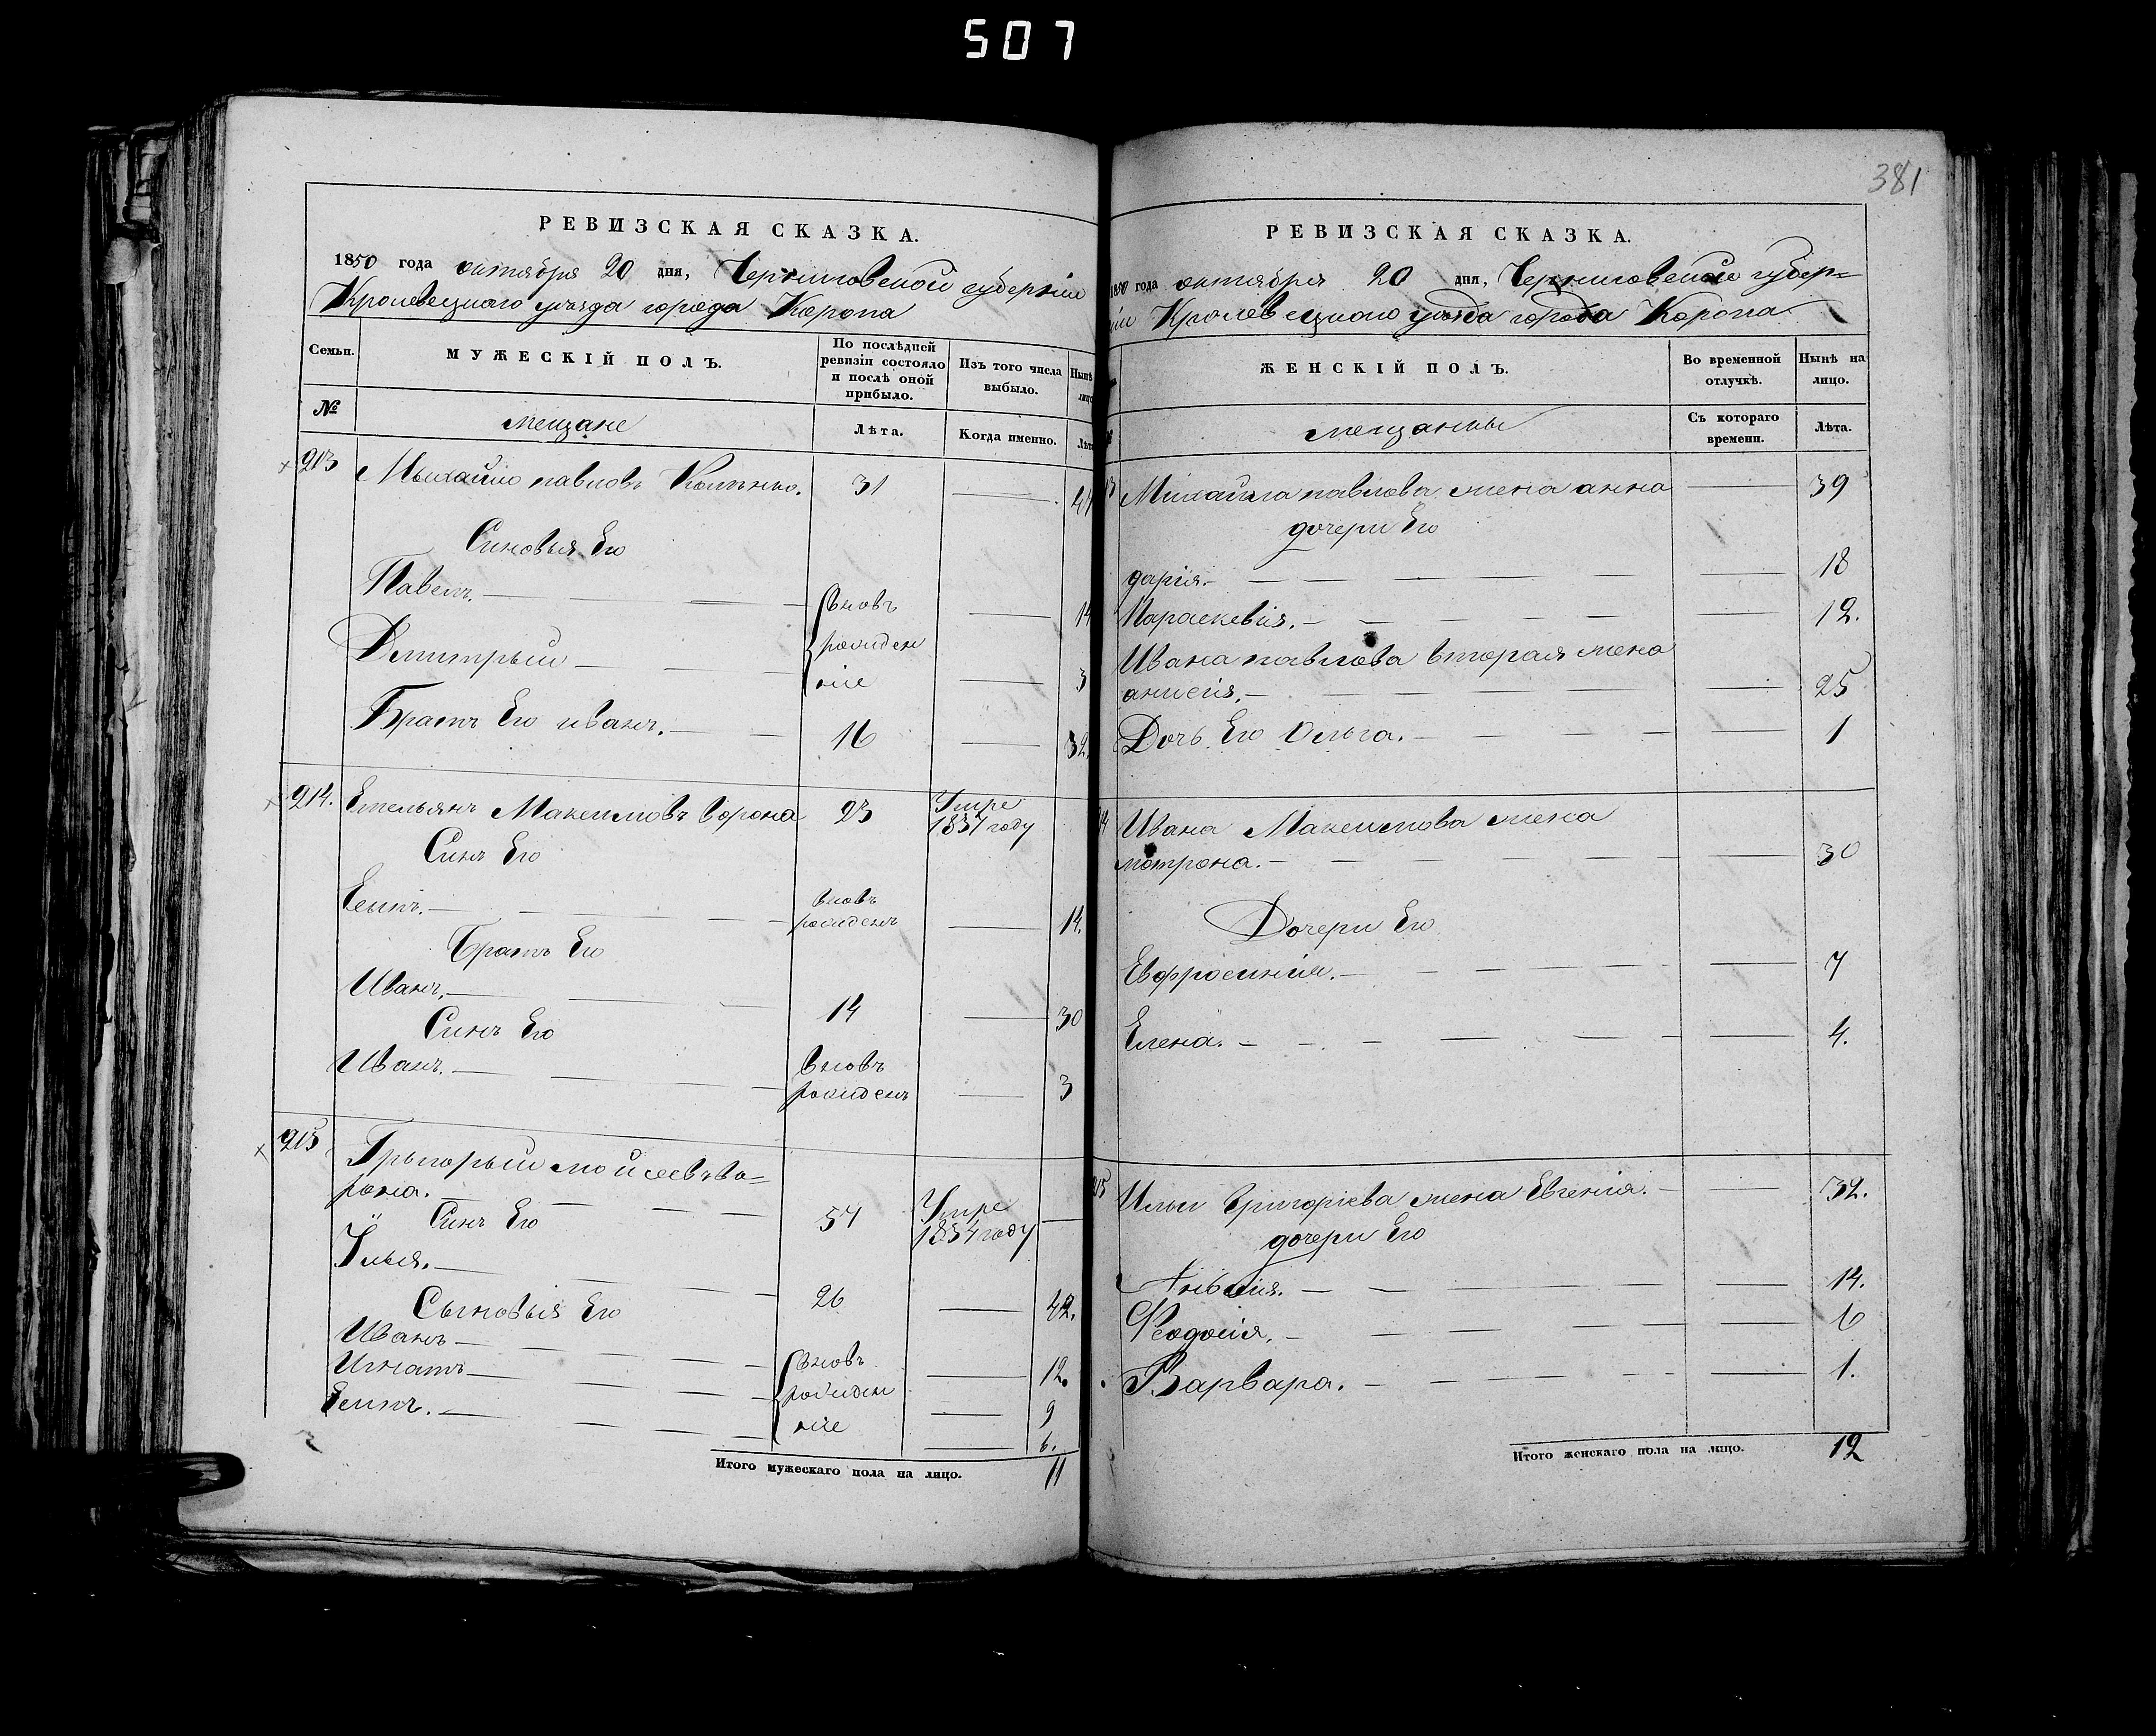 507
РЕВИЗСКАЯ СКАЗКА.
1850 года октября 20 дня, Черниговской губерніи
Кролевецкаго уѣзда города Коропа
Семьи.
МУЖЕСКІЙ ПОЛЪ.
По послѣдней ревизіи состояло и послѣ оной прибыло.
Изъ того числа выбыло.
Нынѣ лицо
№
мещане
Лѣта.
Когда именно.
Лѣт
213 Мыхайло павловъ 31 47
Синовья Его
Павелъ. вновь 14
Дмитрый рожден 3
ніе
Братъ Его иванъ. 16 32.
214. Емельянъ Максимовъ ворона 23 Умре
1837 году
Синъ Его
Есипъ. вновь
рожденъ 14.
Братъ Его
Иванъ. 14 30
Синъ Его
Иванъ. вновь
рожденъ 3
215 Грыгорый мойсеевъ во=
рона. 57 Умре
1834 году
Синъ Его
Ілья. 26 42.
Сыновья Его
Иванъ вновь 12.
Игнатъ рожден 9
Есипъ. ніе 6.
Итого мужескаго пола на лицо. 11
381
РЕВИЗСКАЯ СКАЗКА.
1850 года октября 20 дня, Черниговской губер=
ніи Кролевецкаго уѣзда города Коропа
ЖЕНСКІЙ ПОЛЪ.
Во временной отлучкѣ.
Нынѣ на лицо.
мещанкы
Съ котораго времени.
Лѣта.
Михайла павлова жена анна 39
дочери Его
дарія. 18
Параскевія. 12.
Ивана павлова вторая жена
анисія. 25
Дочь Его Ольга. 1
14 Ивана Максимова жена
мотрона. 30
Дочери Его
Евфросинія. 7
Елена. 4.
215 Ильи Григоріева жена Евгенія. 32.
дочери Его
14.
Феодосія. 6
Варвара. 1.
Итого женскаго пола на лицо. 12